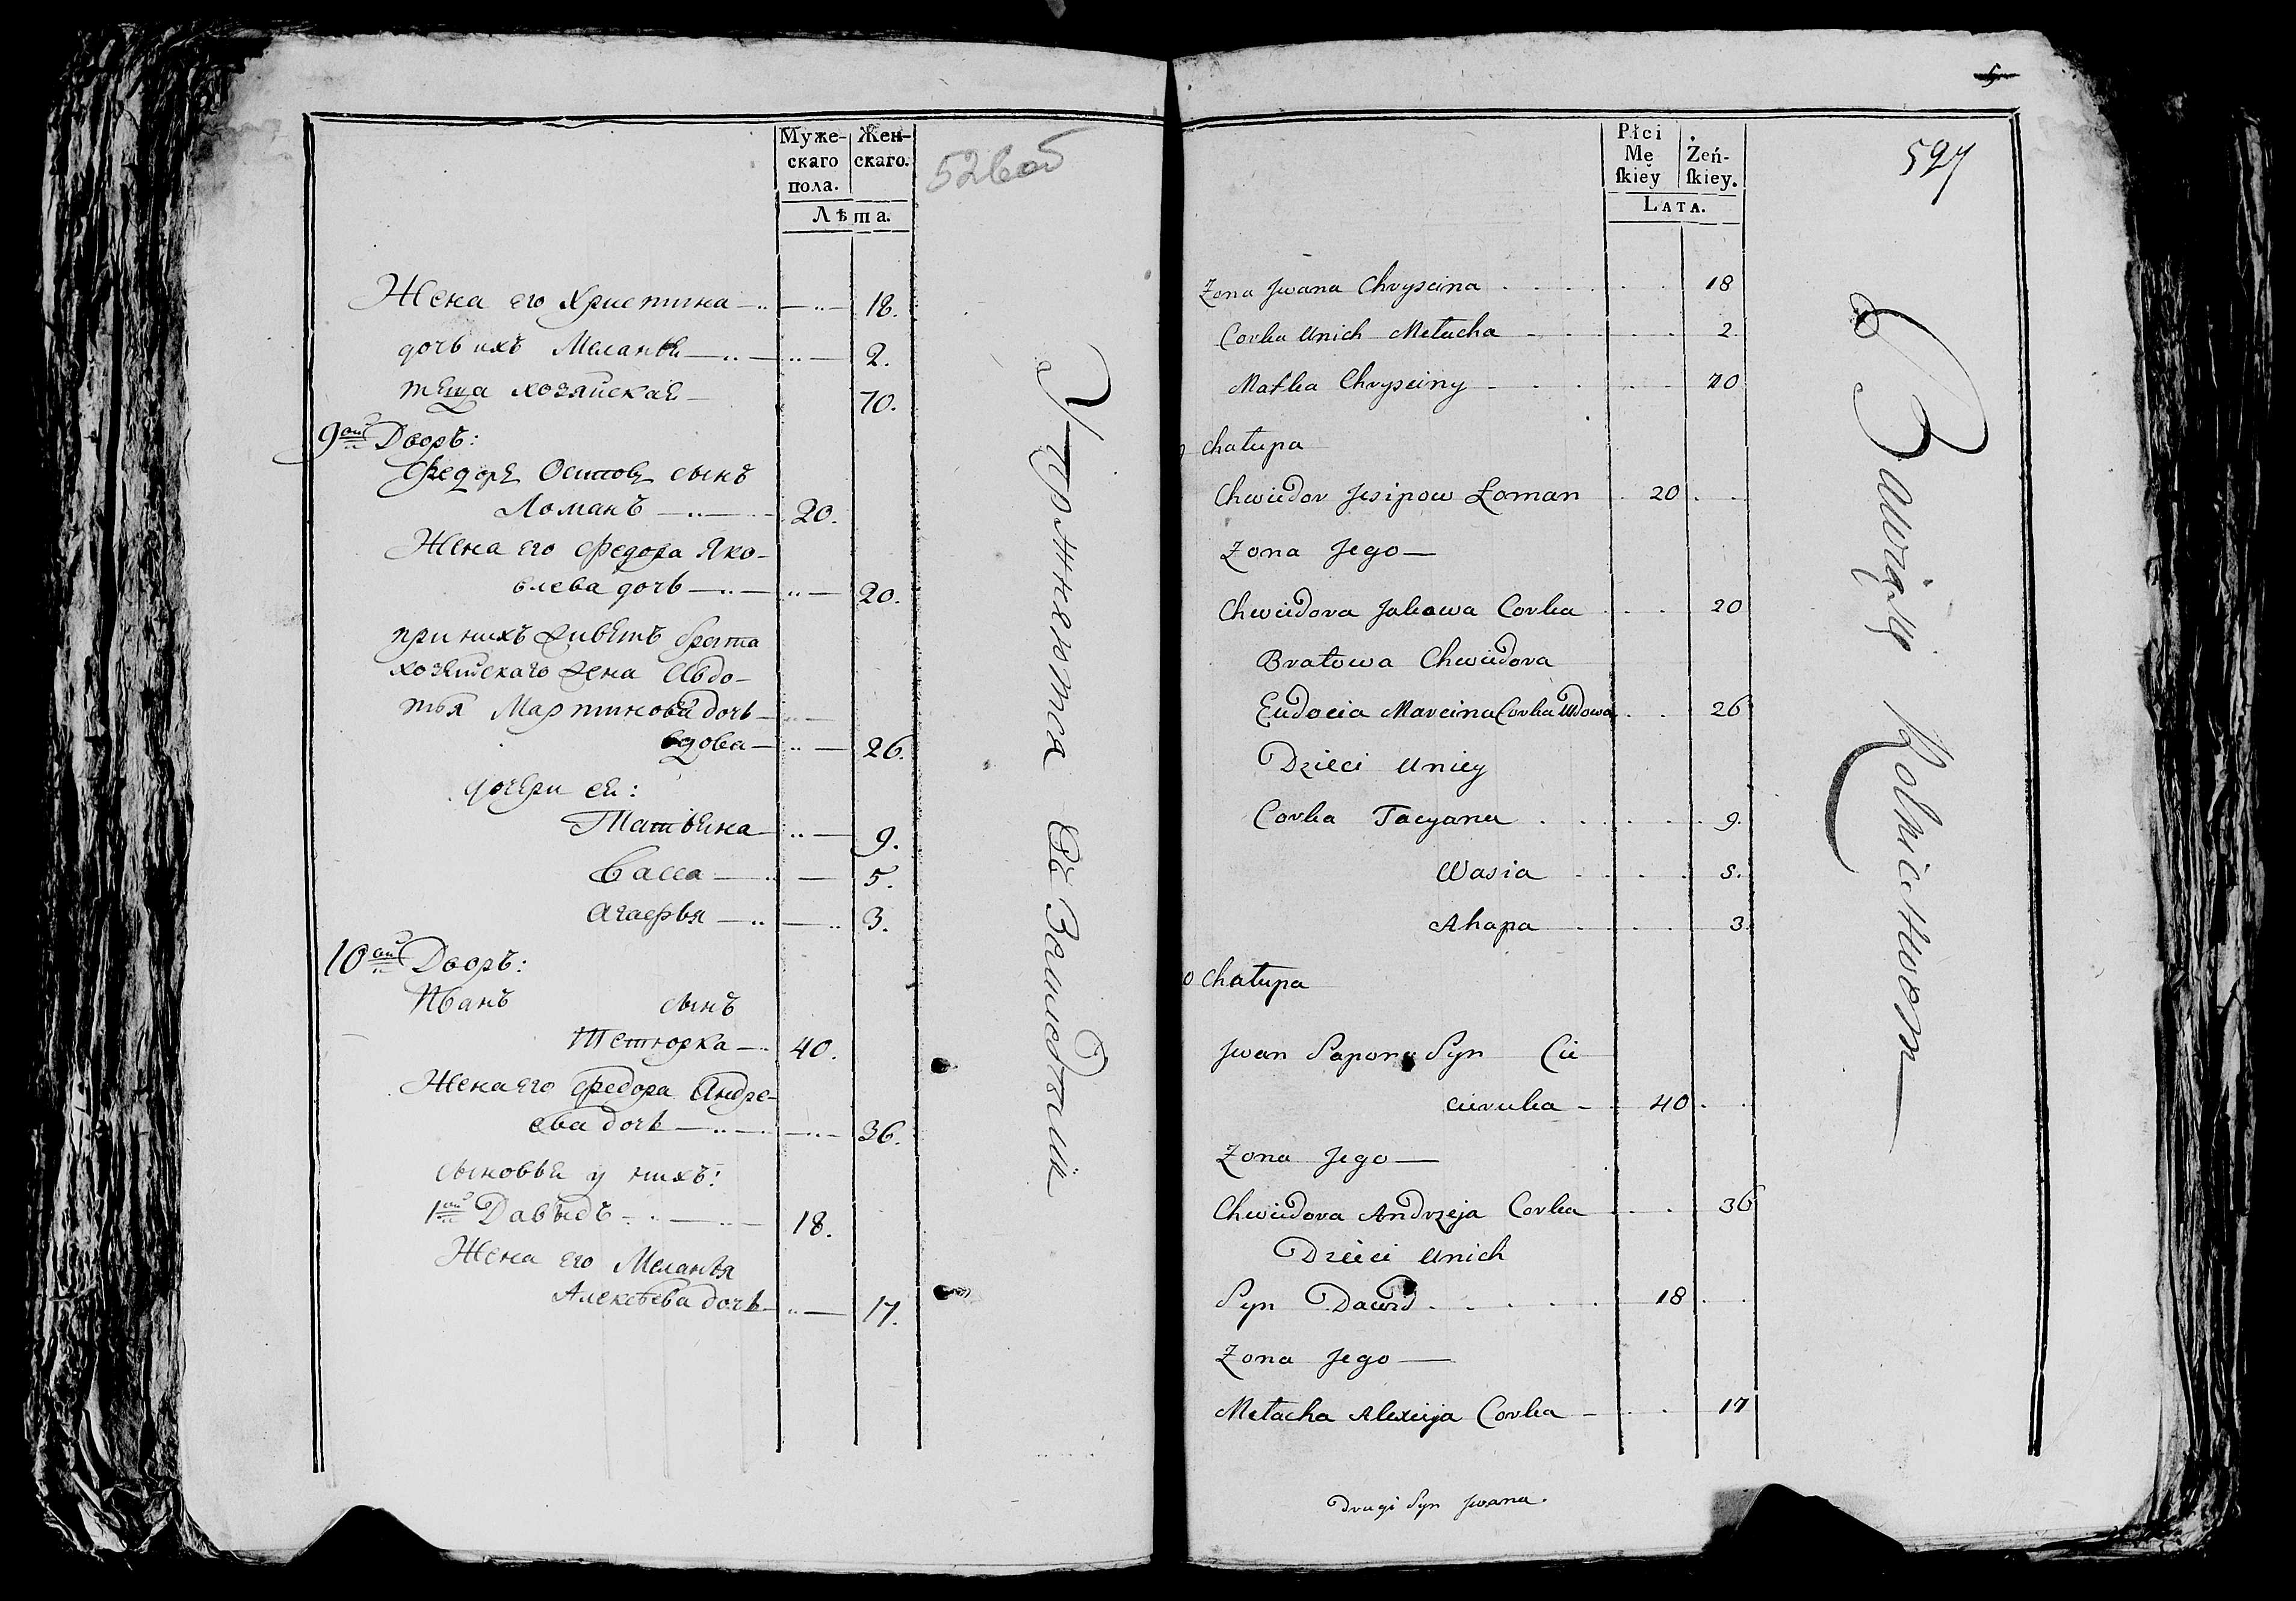 Муже-
скаго
пола.
Жен-
скаго.
Лѣта.
52 об
Жена его Христина — 18.
дочь ихъ Меланья — 2.
теща хозяйская — 70.
9ый Дворъ:
Федоръ Осиповъ сынъ
Ломанъ — 20.
Жена его Федора Яко-
влева дочь — 20.
при нихъ живетъ брата
хозяйскаго жена Авдо-
тья Мартинова дочь —
вдова — 26.
дочери ея:
Татьяна — 9.
Васса — 5.
Агафья — 3.
10ый Дворъ:
Иванъ сынъ
Тетюрка — 40.
Жена его Федора Андре-
ева дочь — 36.
сыновья у нихъ:
1ый Давыдъ — 18.
Жена его Меланья
Алексѣева дочь — 17.
Упражняются въ Земледѣлии
Płci
Mę
ſkiey
Żeń-
ſkiey.
LATA.
527
Zona Jwana Chryscina 18
Corka Unich Mełacha 2.
Matka Chrysciny 70
Chałupa
Chwiedor Jesipow Łoman 20
Zona Jego —
Chwiedora Jakowa Corka 20
Bratowa Chwiedora
Eudocia Marcina Corka Wdowa 26
Dzieci Uniey
Corka Tacyana 9.
Wasia 5.
Ahapa 3.
0 Chałupa
Jwan Sapona Syn Cie
cieruka 40
Zona Jego —
Chwiedora Andrzeja Corka 36
Dzieci Unich
Syn Dawid 18
Zona Jego —
Mełacha Alexieja Corka 17
Drugi Syn Jwana.
Bawią się Rolnictwem